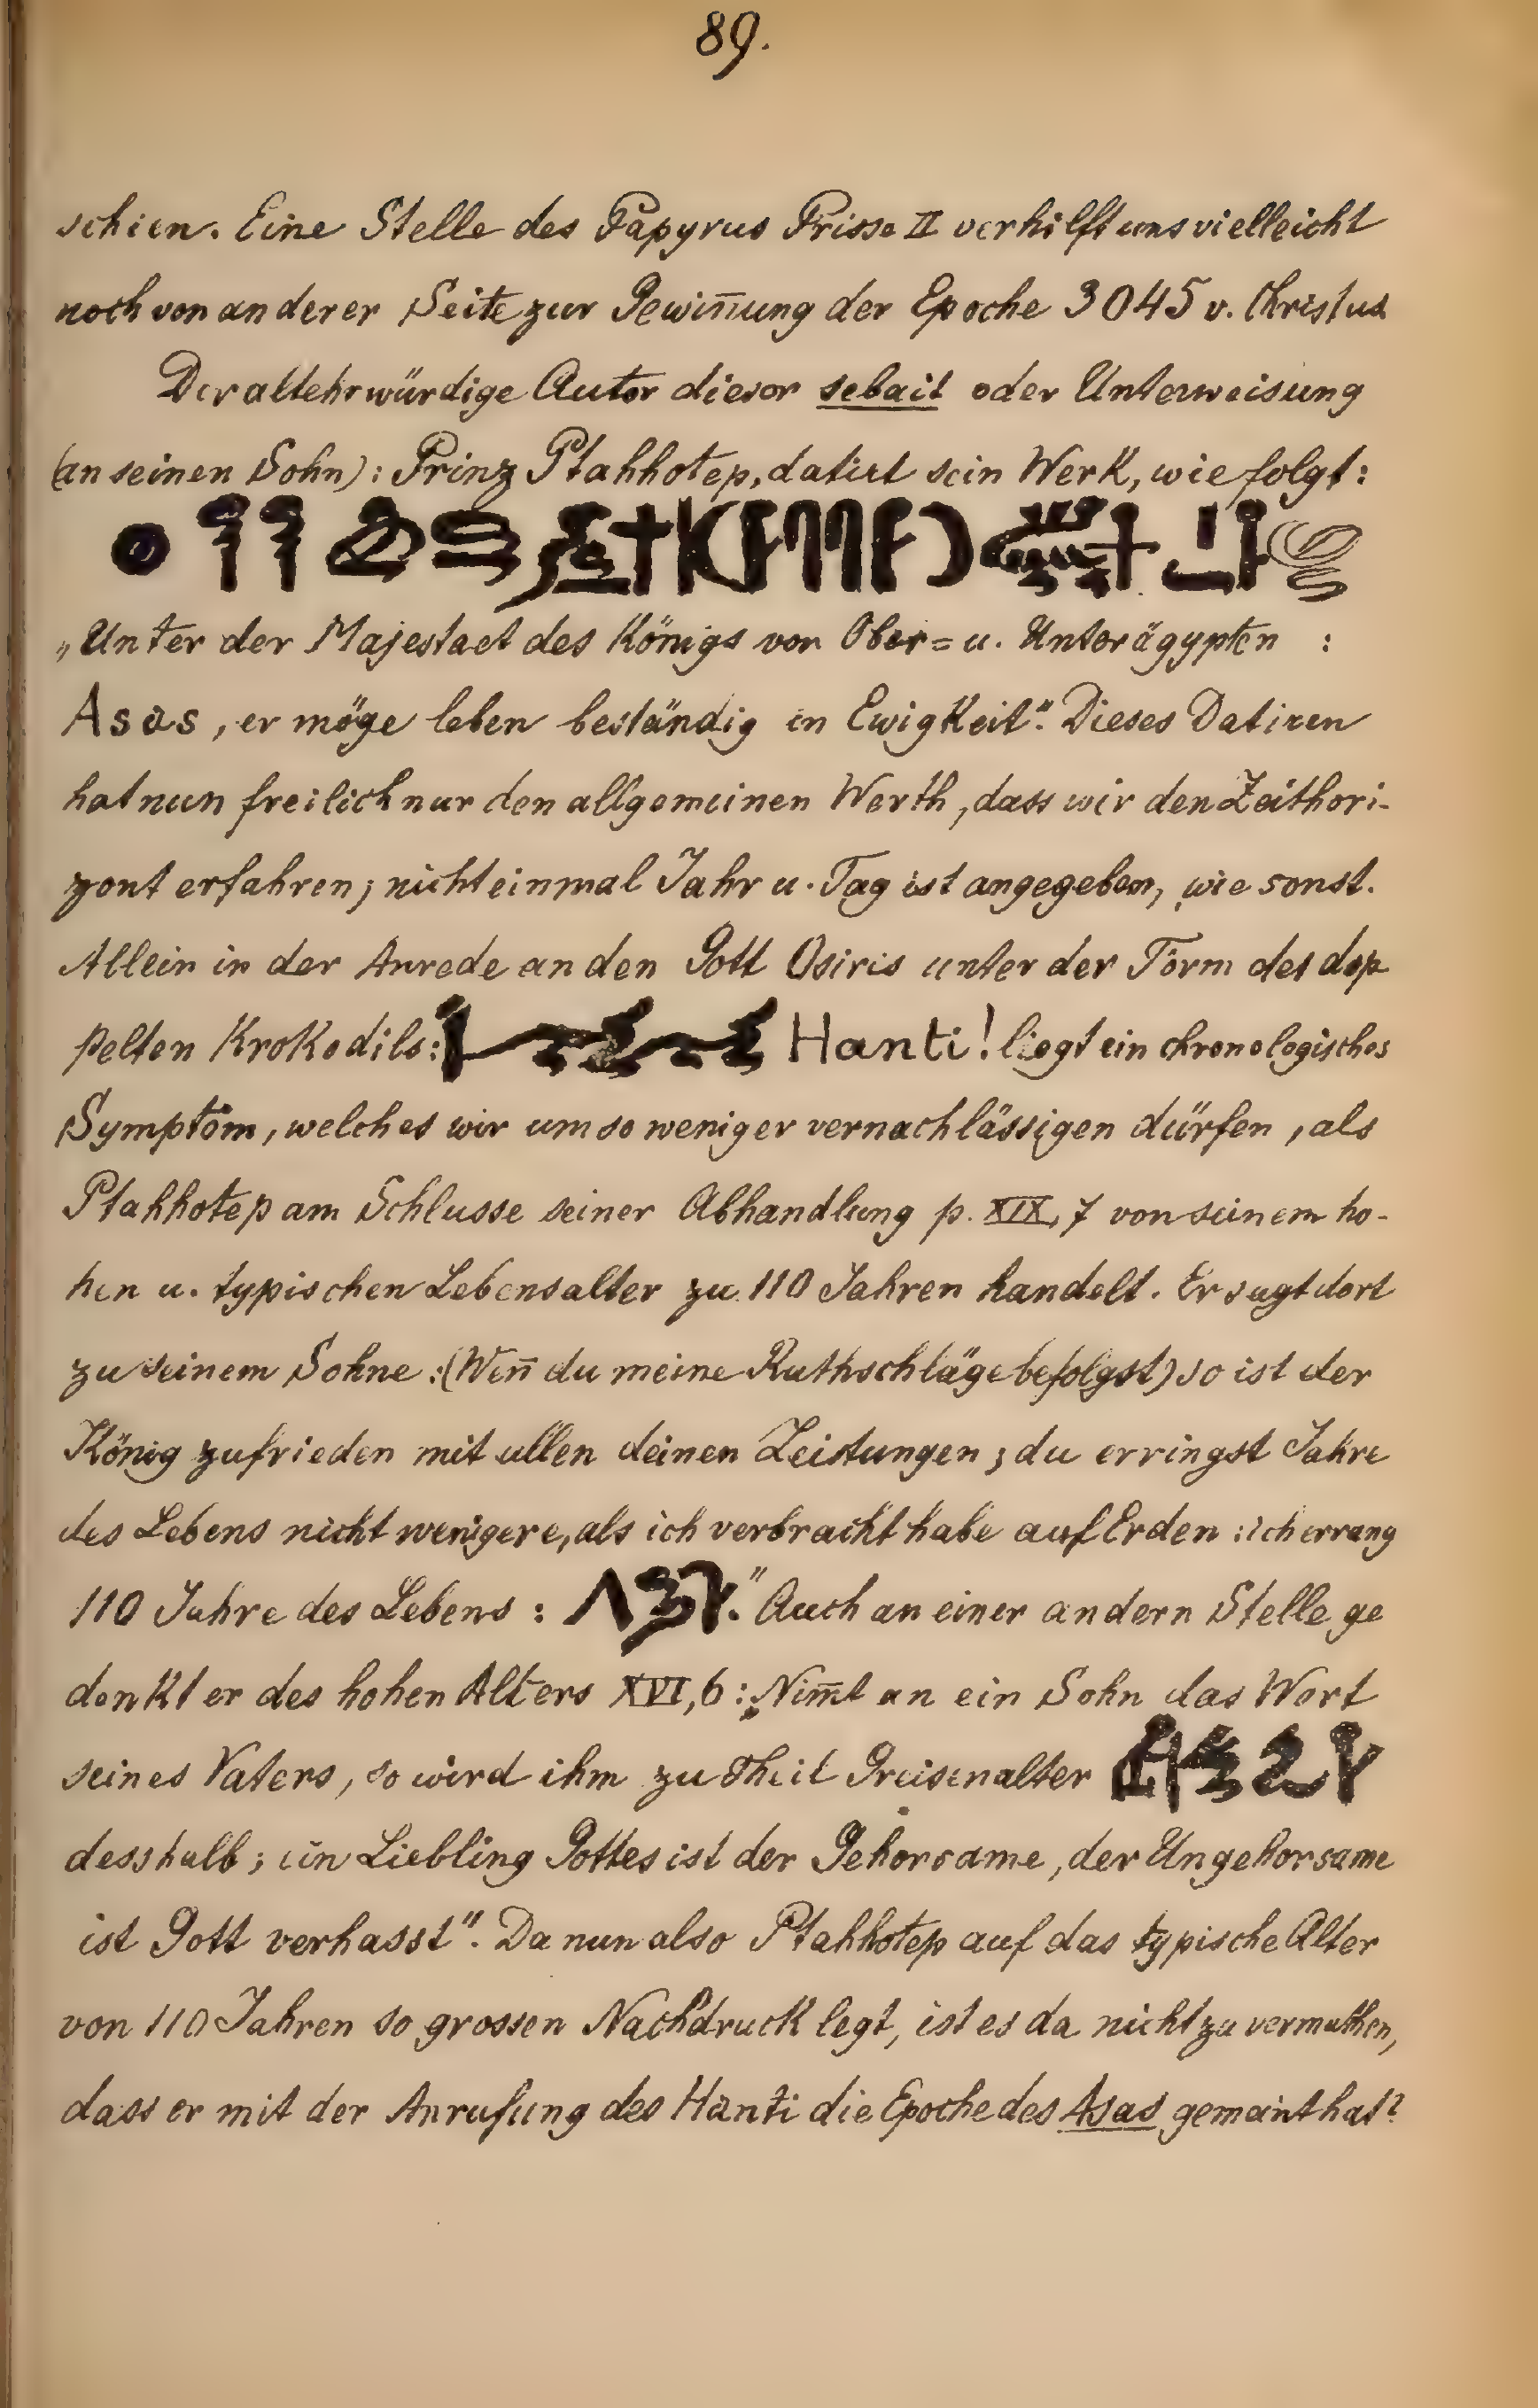 89.
schien. Eine Stelle des Papyrus Prisse II verhilft uns vielleicht
noch von anderer Seite zur Gewin̄ung der Epoche 3045 v. Christus
Der altehrwürdige Autor dieser sebait oder Unterweisung
(an seinen Sohn): Prinz Ptahhotep, datirt sein Werk, wie folgt:
„Unter der Majestaet des Königs von Ober= u. Unterägypten :
Asas, er möge leben beständig in Ewigkeit". Dieses Datiren
hat nun freilich nur den allgemeinen Werth, dass wir den Zeithori-
zont erfahren; nicht einmal Jahr u. Tag ist angegeben, wie sonst.
Allein in der Anrede an den Gott Osiris unter der Form des dop
pelten Krokodils: Hanti! liegt ein chronologisches
Symptom, welches wir um so weniger vernachlässigen dürfen, als
Ptahhotep am Schlusse seiner Abhandlung p. XIX, 7 von seinem ho-
hen u. typischen Lebensalter zu 110 Jahren handelt. Er sagt dort
zu seinem Sohne: (Wen̄ du meine Rathschläge befolgst) so ist der
König zufrieden mit allen deinen Leistungen; du erringst Jahre
des Lebens nicht wenigere, als ich verbracht habe auf Erden: ich errang
110 Jahre des Lebens : ." Auch an einer andern Stelle ge
denkt er des hohen Alters XVI, 6: „Nim̄t an ein Sohn das Wort
seines Vaters, so wird ihm zu Theil Greisenalter
desshalb; ein Liebling Gottes ist der Gehorsame, der Ungehorsame
ist Gott verhasst". Da nun also Ptahhotep auf das typische Alter
von 110 Jahren so grossen Nachdruck legt, ist es da nicht zu vermuthen,
dass er mit der Anrufung des Hanti die Epoche des Asas gemeint hat?